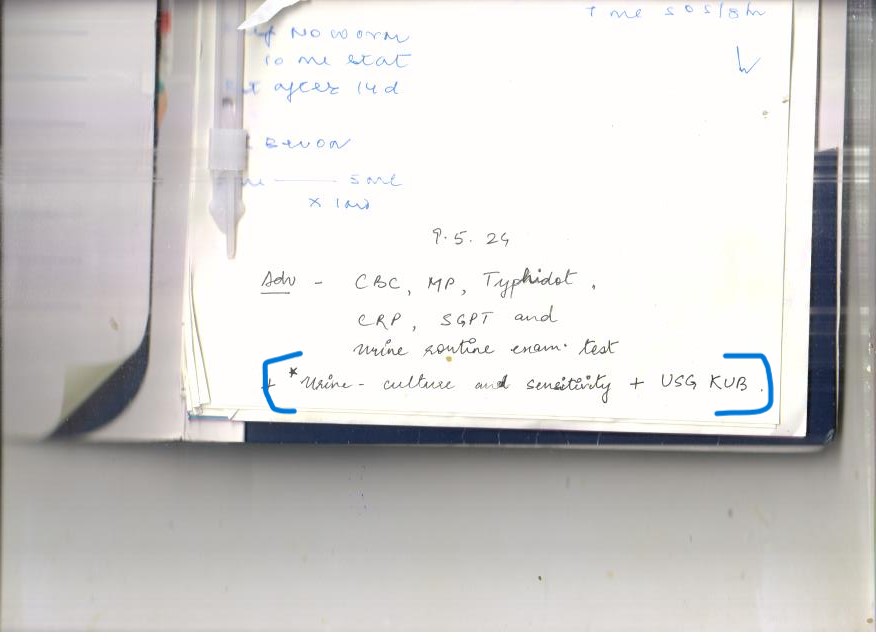 7 ml SOS/8hr
NO worm
10 ml stat
after 14d
5 ml
9.5.24
Adv - CBC, MP, Typhidot,
CRP, SGPT and
urine routine exam. test
+ * Urine - culture and sensitivity + USG KUB.